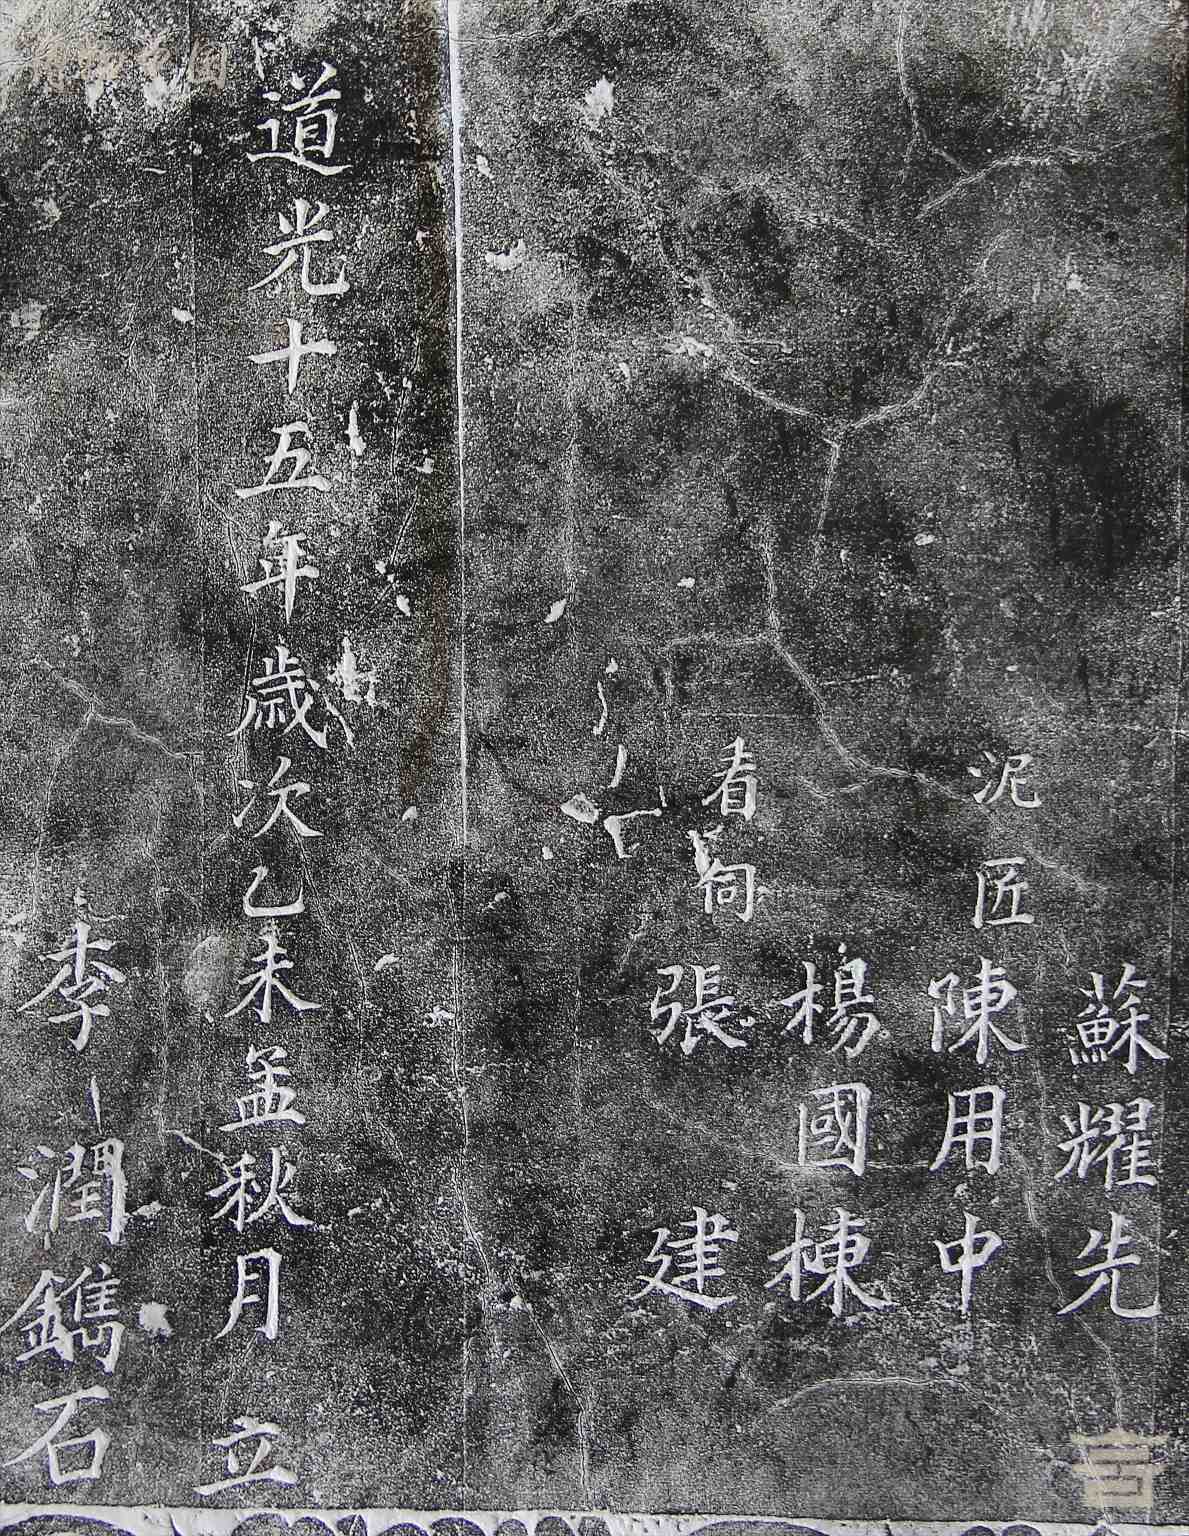 蘇耀先
泥匠陳用中
楊國棟
看荀張建
道光十五年歲次乙未孟秋月立
李潤鐫石